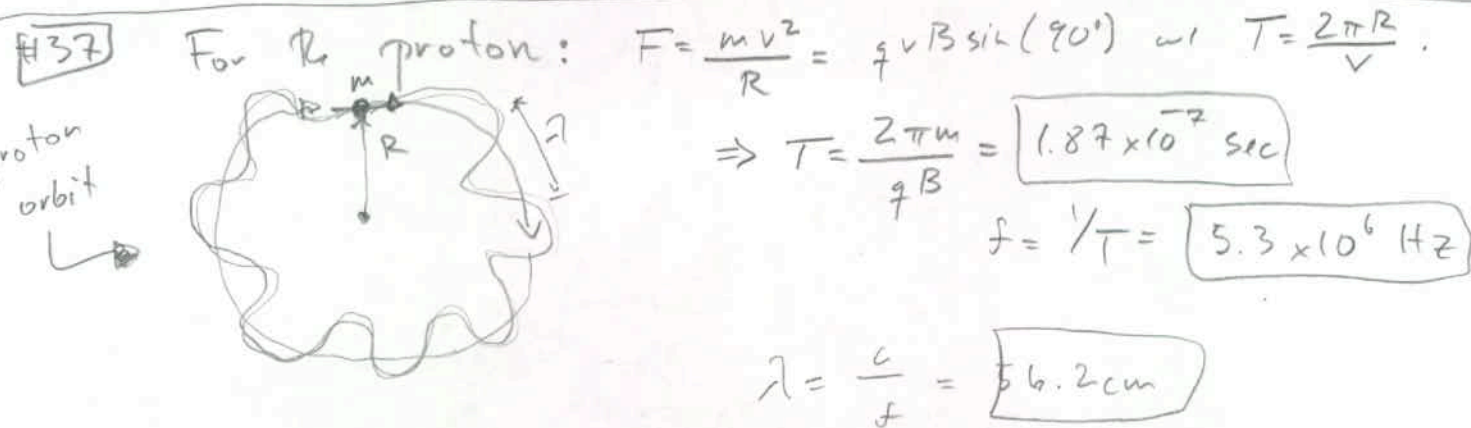 #37 For the proton: F = mv²/R = qvBsin(90°) w/ T = 2πR/v.
m
R
λ
roton
orbit
⇒ T = 2πm/qB = 1.87 x10⁻⁷ sec
f = 1/T = 5.3 x10⁶ Hz
λ = c/f = 56.2 cm